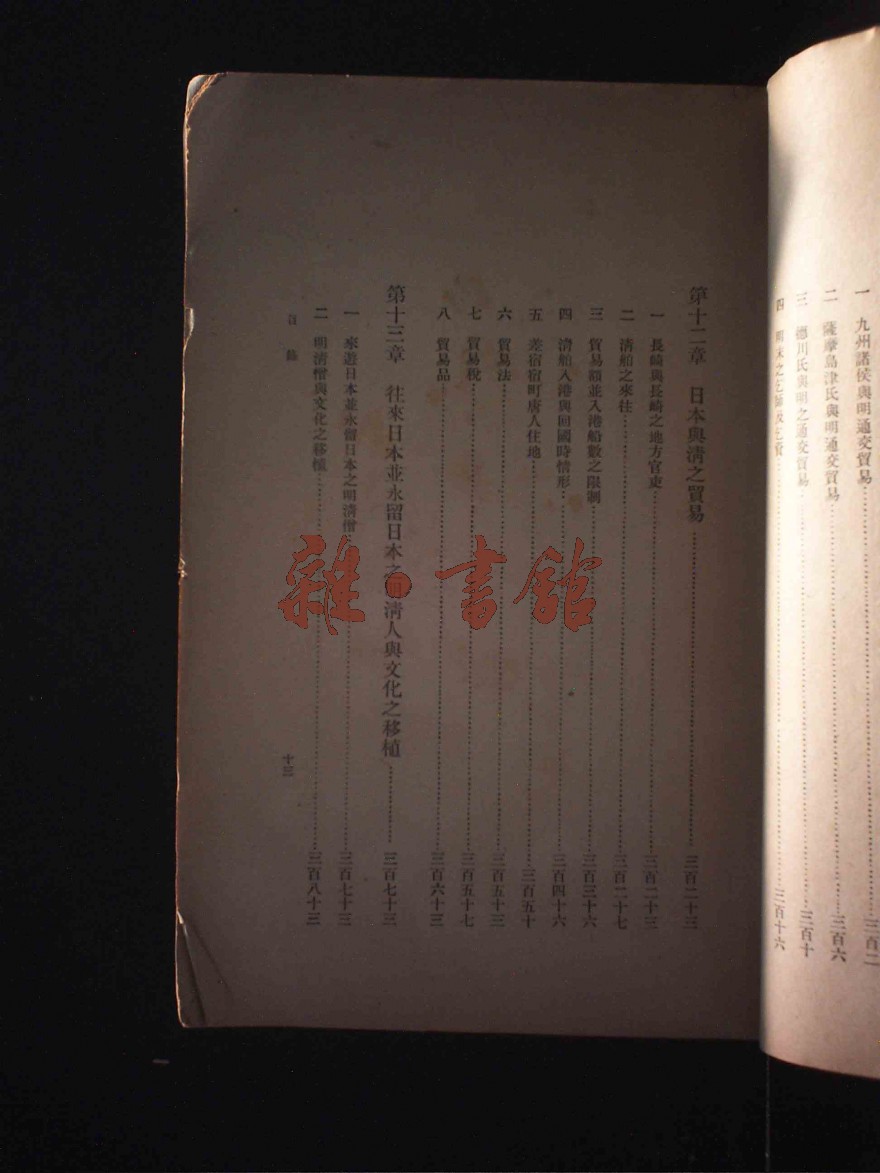 一　九州諸侯與明通交貿易……三百二
二　薩摩島津氏與明通交貿易……三百六
三　德川氏與明之通交貿易……三百十
四　明末之乞師及乞資……三百十六
第十二章　日本與清之貿易……三百二十三
一　長崎與長崎之地方官吏……三百二十三
二　清舶之來往……三百二十七
三　貿易額並入港船數之限制……三百三十六
四　清舶入港與回國時情形……三百四十六
五　差宿宿町唐人住地……三百五十
六　貿易法……三百五十三
七　貿易稅……三百五十七
八　貿易品……三百六十三
第十三章　往來日本並永留日本之明清人與文化之移植……三百七十三
一　來遊日本並永留日本之明清僧……三百七十三
二　明清僧與文化之移植……三百八十三
目錄
十三
雜·書館